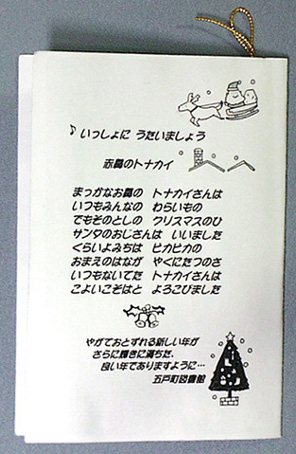 ♪ いっしょに うたいましょう
赤鼻のトナカイ
まっかなお鼻の トナカイさんは
いつもみんなの わらいもの
でもそのとしの クリスマスのひ
サンタのおじさんは いいました
くらいよみちは ピカピカの
おまえのはなが やくにたつのさ
いつもないてた トナカイさんは
こよいこそはと よろこびました
やがておとずれる新しい年が
さらに輝きに満ちた、
良い年でありますように…
五戸町図書館